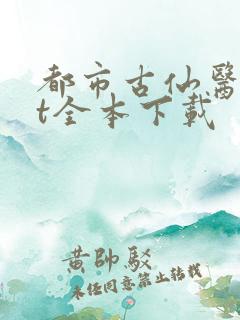 都市古仙醫
t全本下載
黃帥駁
未經同意禁止轉載